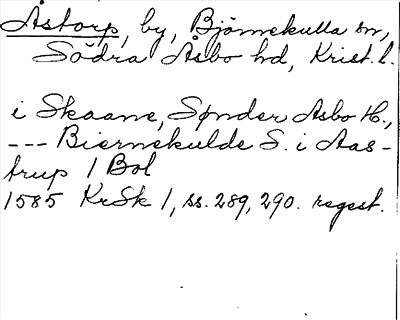 Åstorp, by, Björnekulla sn,
Södra Åsbo hd, Krist. l.
i Skaane, Sønder Asbo H.,
--- Biernekulde S. i Aas-
trup 1 Bol
1585 KrSk 1, ss. 289, 290. regest.